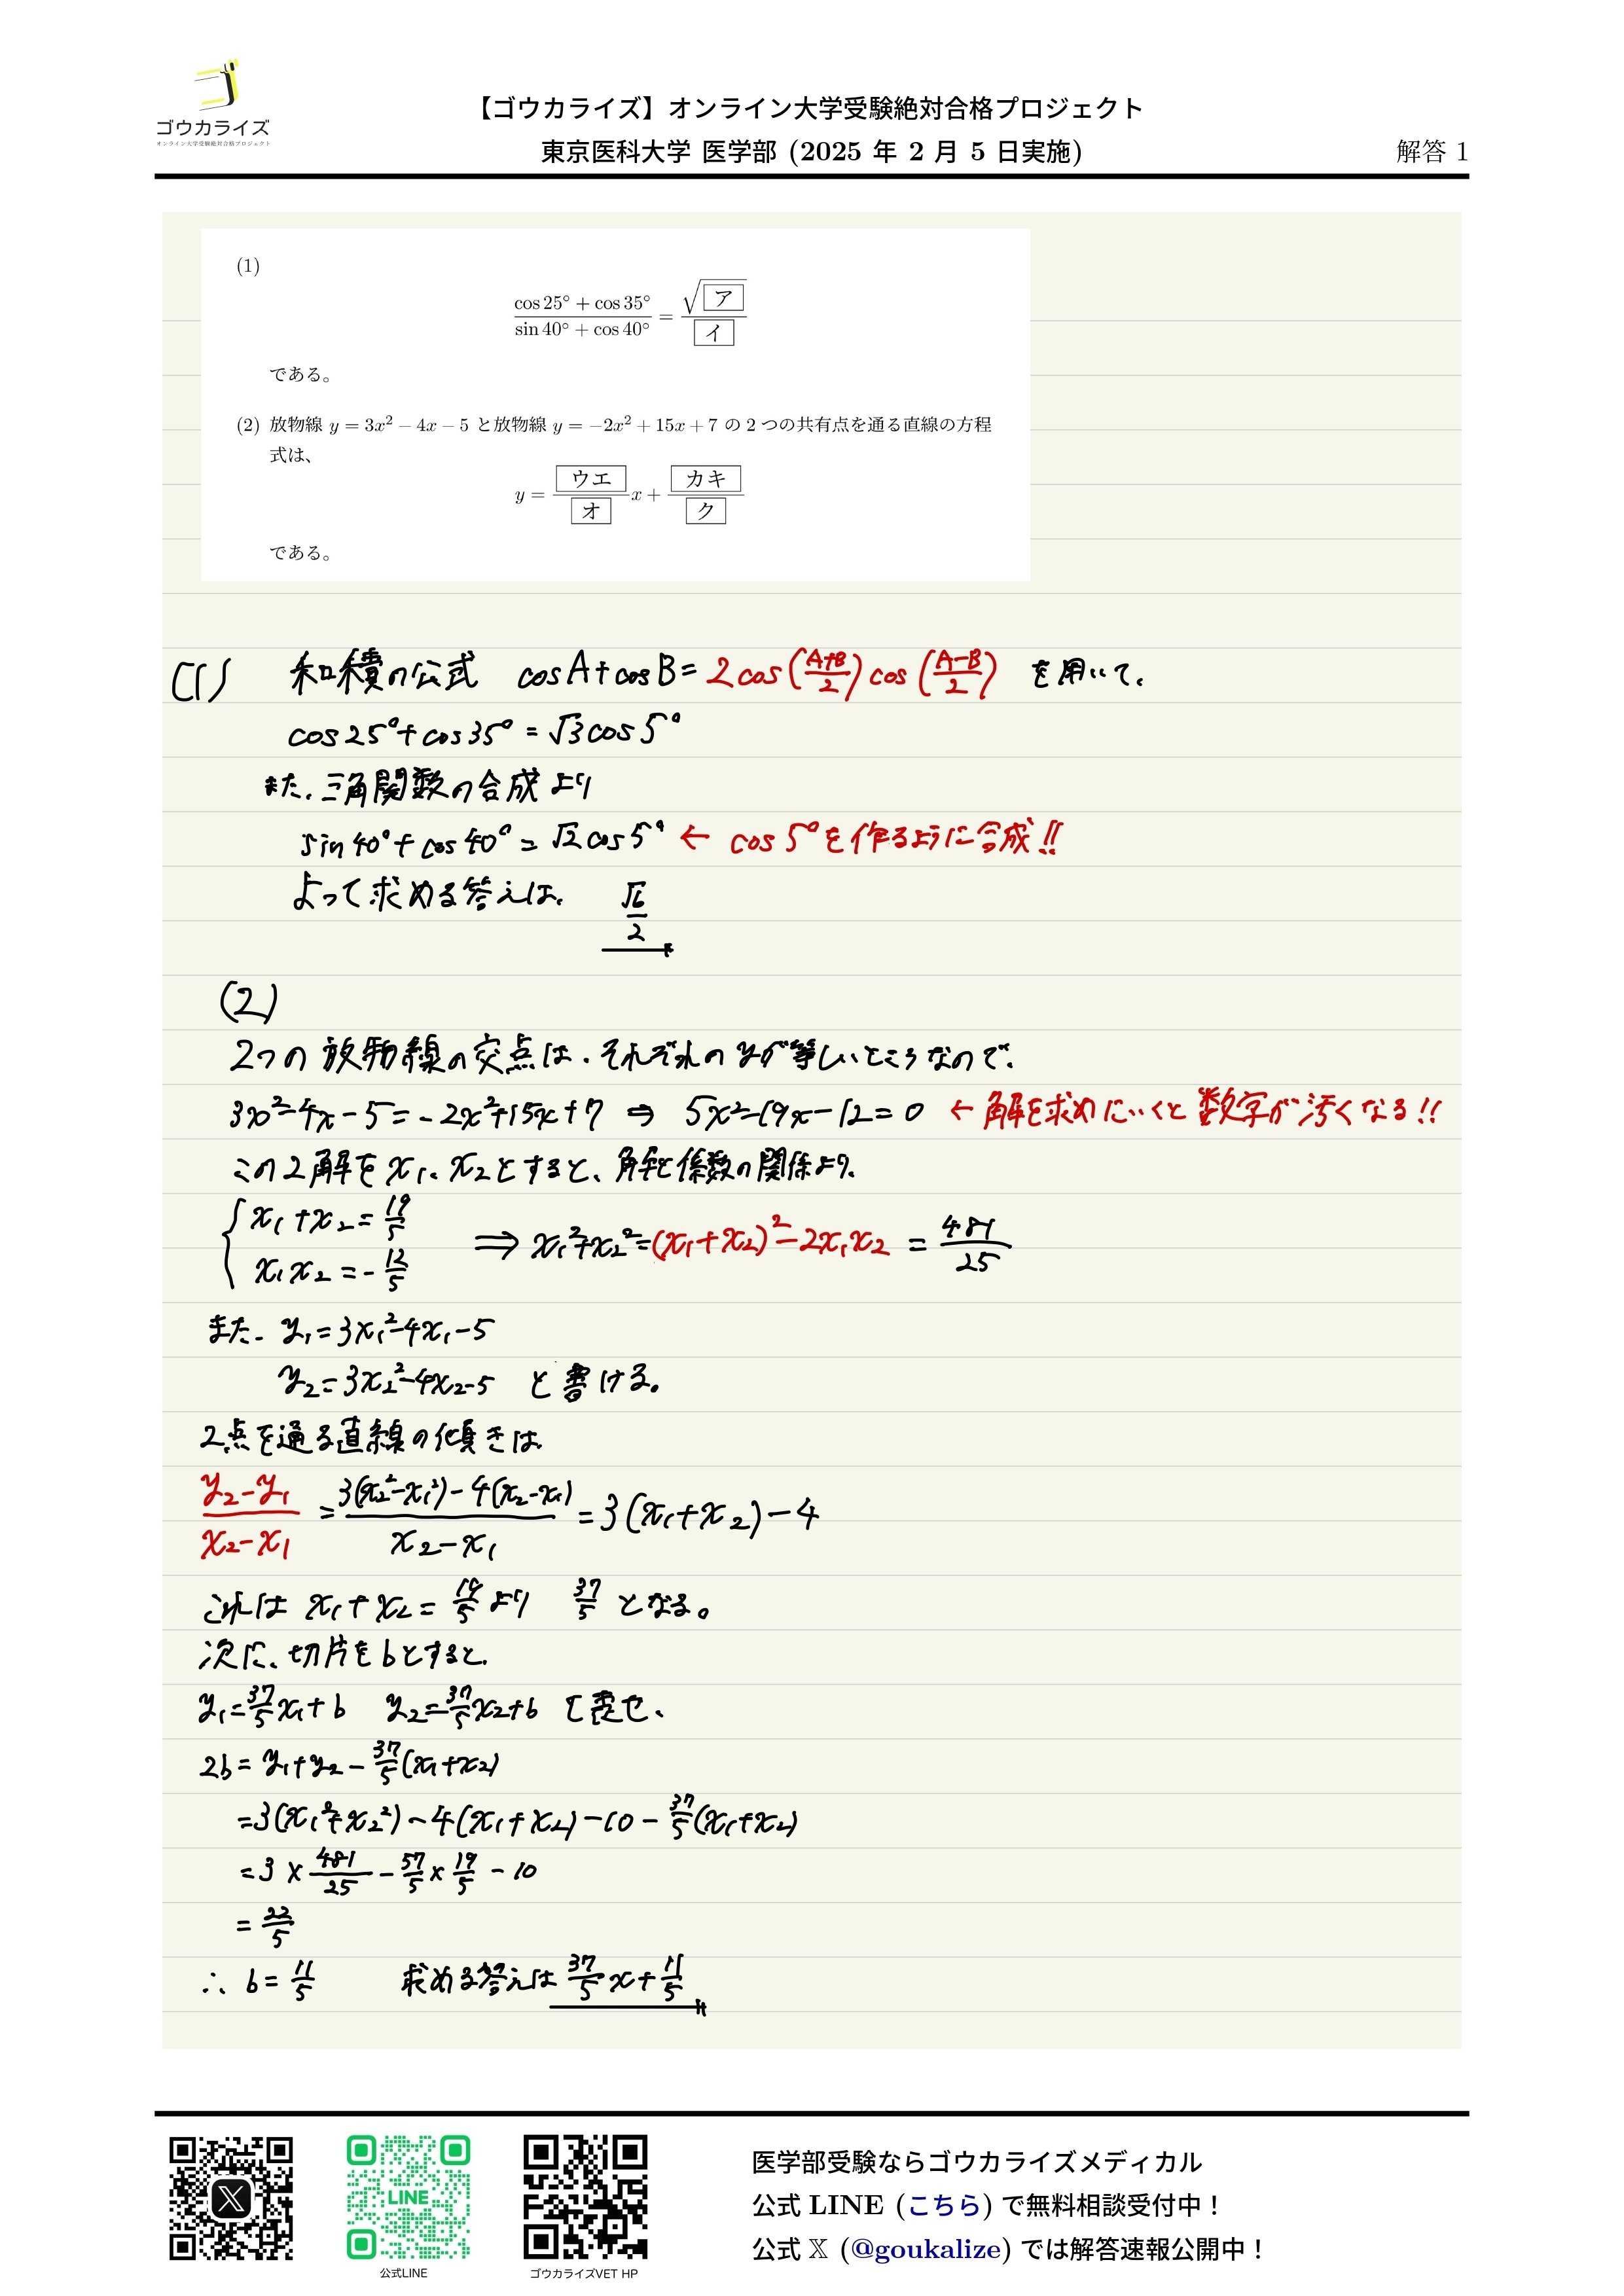 ゴウカライズ
オンライン大学受験絶対合格プロジェクト
【ゴウカライズ】オンライン大学受験絶対合格プロジェクト
東京医科大学 医学部 (2025 年 2 月 5 日実施)
解答 1
(1)
(cos 25° + cos 35°)/(sin 40° + cos 40°) = √ア/イ
である。
(2) 放物線 y = 3x² − 4x − 5 と放物線 y = −2x² + 15x + 7 の 2 つの共有点を通る直線の方程
式は、
y = ウエ/オ x + カキ/ク
である。
(1) 和積の公式 cosA+cosB=2cos((A+B)/2)cos((A−B)/2) を用いて、
cos25°+cos35°=√3cos5°
また、三角関数の合成より
sin40°+cos40°=√2cos5° ← cos5°を作るように合成!!
よって求める答えは、 √6/2
(2)
2つの放物線の交点は、それぞれのyが等しいところなので、
3x²−4x−5=−2x²+15x+7 ⇒ 5x²−19x−12=0 ←解を求めにいくと数字が汚くなる!!
この2解をx₁、x₂とすると、解と係数の関係より、
x₁+x₂=19/5
x₁x₂=−12/5
⇒ x₁²+x₂²=(x₁+x₂)²−2x₁x₂ = 481/25
また、y₁=3x₁²−4x₁−5
y₂=3x₂²−4x₂−5 と書ける。
2点を通る直線の傾きは
(y₂−y₁)/(x₂−x₁) = (3(x₂²−x₁²)−4(x₂−x₁))/(x₂−x₁) = 3(x₁+x₂)−4
これは x₁+x₂=19/5 より 37/5 となる。
次に、切片をbとすると、
y₁=37/5x₁+b y₂=37/5x₂+b と表せ、
2b=y₁+y₂−37/5(x₁+x₂)
=3(x₁²+x₂²)−4(x₁+x₂)−10−37/5(x₁+x₂)
=3×481/25−57/5×19/5−10
=22/5
∴ b=11/5 求める答えは 37/5x+11/5
LINE
公式LINE
ゴウカライズVET HP
医学部受験ならゴウカライズメディカル
公式 LINE (こちら) で無料相談受付中！
公式 𝕏 (@goukalize) では解答速報公開中！